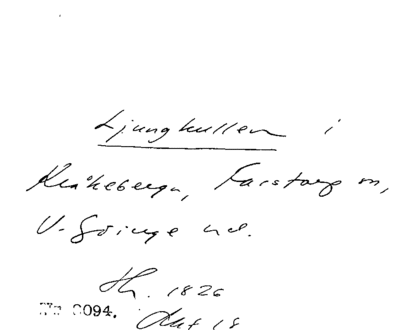 Ljungkullen i
Kråkeberga, Farstorp sn,
V. Göinge hd.
1826
Akt 18